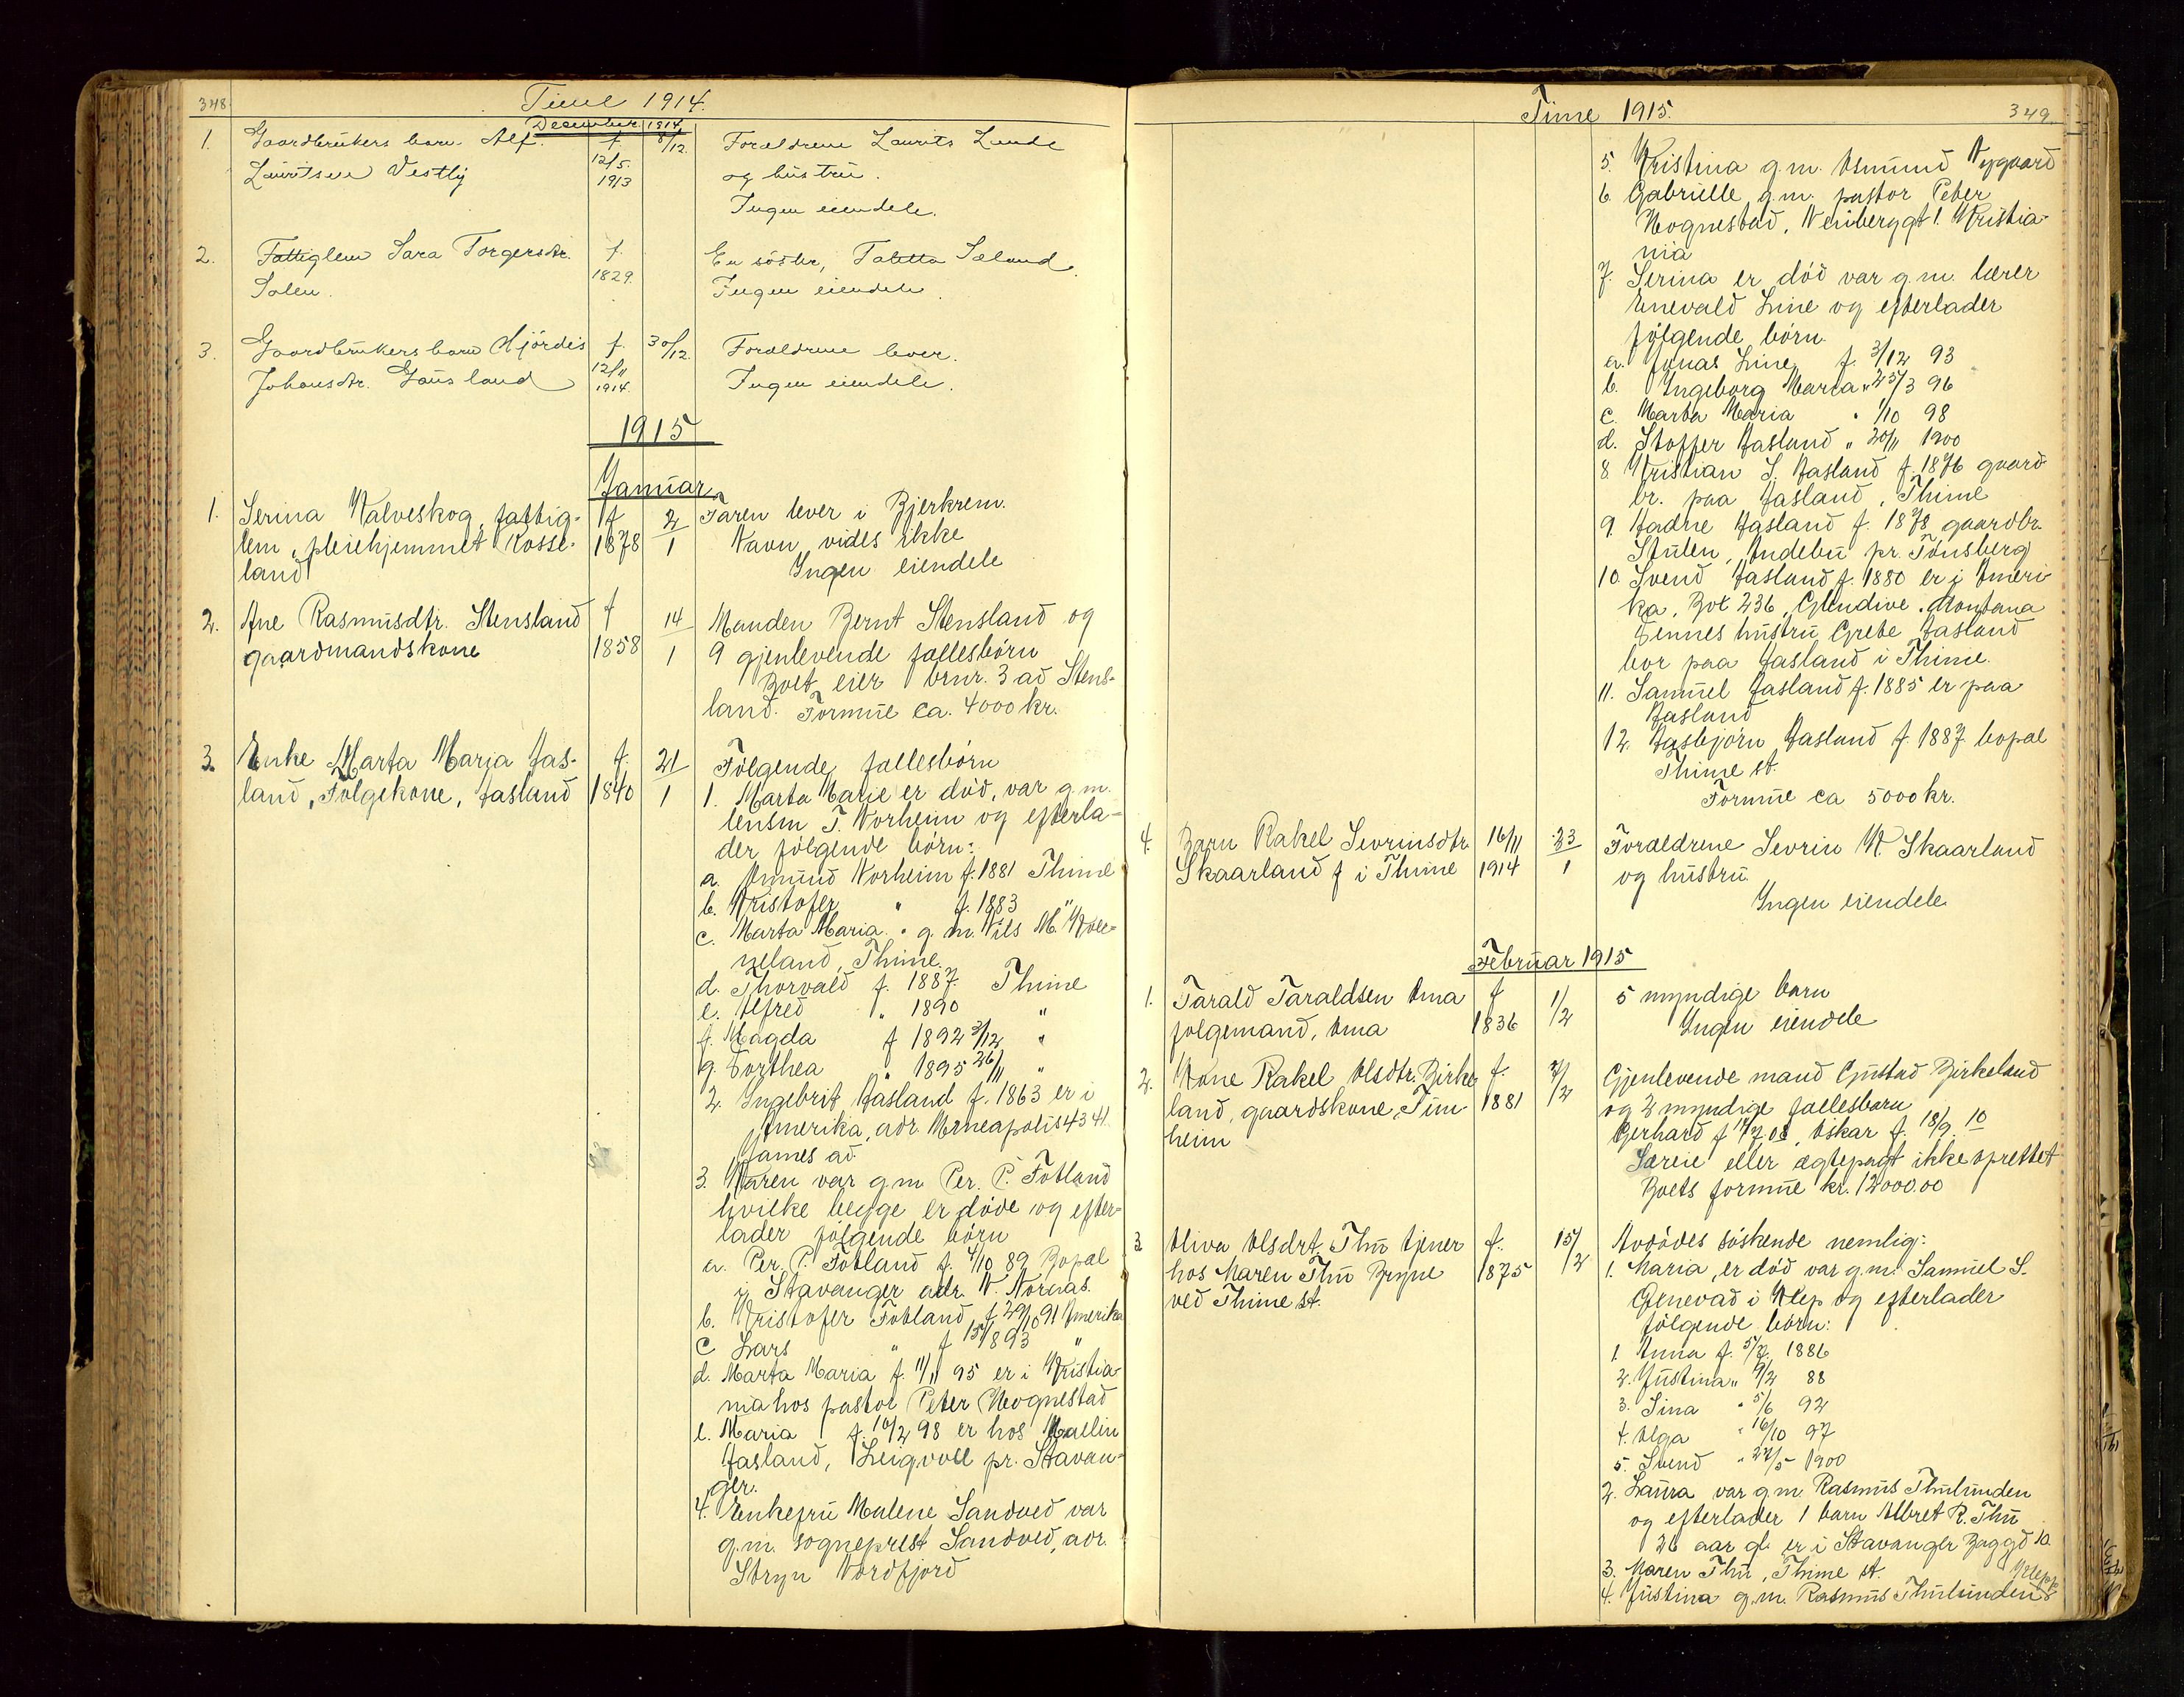 348.
Time 1914.
December 1914
1. Gaardbrukers barn Alf. f. 8/12. Forældrene Laurits Lende
Lauritsen Vestly 12/5. 1913 og hustru.
Ingen eiendele.
2. Fattiglem Sara Torgersdtr. f. En söster, Tabitta Sæland.
1829. Ingen eiendele.
3. Gaardbrukers barn Hjördis f. 30/12. Forældrene lever.
Johansdtr. Gausland 12/11 1914. Ingen eiendele.
1915
Januar
1. Serina Kalveskog, fattig- f 2/1 Faren lever i Bjerkrem.
lem, pleiehjemmet Rosse- 1878 Navn vides ikke
land Ingen eiendele
2. Ane Rasmusdtr. Stensland f 14/1 Manden Bernt Stensland og
gaardmandskone 1858 9 gjenlevende fællesbörn
Boet eier brnr. 3 ad Stens-
land. Formue ca. 4000 kr.
3. Enke Marta Maria Aas- f. 21/1 Fölgende fællesbörn
land, Fölgekone, Aasland 1840 1. Marta Marie er död, var g.m.
lensm T. Norheim og efterla-
der fölgende börn:
a. Amund Norheim f. 1881 Thime
b. Kristofer " f. 1883 "
c. Marta Maria " g.m. Nils M.
neland, Thime.
d. Thorvald f. 1887. Thime
e. Alfred " 1890 "
f. Magda f 1892 3/12 "
g. Dorthea " 1895 26/11 "
2. Ingebrit Aasland f. 1863 er i
Amerika, adr. Mineapolis 4341
James av.
3. Karen var g.m Per. P. Fotland
hvilke begge er döde og efter-
lader fölgende börn
a. Per. P. Fotland f. 4/10 89 Bopæl
i Stavanger adr. N.
b. Kristofer Fotland f 29/10 91 Amerika
c Lars " f 15/8 93 "
d. Marta Maria f. 11/11 95 er i Kristia-
nia hos pastor Peter Hognestad
e. Maria f. 10/2 98 er hos Mallin
Aasland, Leigvoll pr. Stavan-
ger.
4. Enkefru Malene Sandved var
g.m. sogneprest Sandved, adr.
Stryn Nordfjord
Time 1915.
349.
5. Kristina g.m. Asmund Nygaard
6. Gabrielle g.m. pastor Peter
Hognestad, Neuberggt 1. Kristia-
nia
7. Serina er död var g.m. lærer
Enevald Line og efterlader
fölgende börn.
a. Jonas Line f. 3/12 93
b. Ingeborg Marta " 25/3 96
c. Marta Maria " 1/10 98
d. Stoffer Aasland " 20/11 1900
8. Kristian S. Aasland f. 1876 gaard-
br. paa Aasland, Thime
9. Aadne Aasland f. 1878 gaardbr.
Stulen, Andebu pr. Tönsberg
10. Svend Aasland f. 1880 er i Ameri-
ka, Box 236, Glendive. Montana
Dennes hustru Grete Aasland
bor paa Aasland i Thime.
11. Samuel Aasland f. 1885 er paa
Aasland
12. Aasbjörn Aasland f. 1887 bopæl
Thime st.
Formue ca 5000 kr.
4. Barn Rakel Sevrinsdtr. 16/11 23/1 Forældrene Sevrin K. Skaarland
Skaarland f i Thime 1914 og hustru
Ingen eiendele
Februar 1915
1. Tarald Taraldsen Oma f 1/2 5 myndige barn
folgemand, Oma 1836 Ingen eiendele
2. Kone Rakel Olsdtr. Birke- f. 7/2 Gjenlevende mand Gustad Birkeland
land, gaardskone, Tim- 1881 og 2 myndige fællesbarn
heim Gerhard f 08, Oskar f. 18/9 10
Særeie eller ægtepagt ikke oprettet
Boets formue kr. 12000.00
3 Oliva Olsdrt. Thu tjener f. 15/2 Avdödes söskende nemlig:
hos Maren Thu Bryne 1875 1. Maria, er död var g.m. Samuel S.
ved Thime st. Grnevad i Klep og efterlader
fölgende börn:
1. Anna f. 5/7. 1886
2. Justina " 9/2 88
3. Sina " 5/6 92
4. Olga " 16/10 97
5. Svend " 22/5 1900
2. Laura var g.m. Rasmus Thulunden
og efterlader 1 barn Albret R. Thu
26 aar gl. er i Stavanger Baggd 10.
3. Maren Thu, Thime st.
4. Justina g.m. Rasmus Thulunden Klep